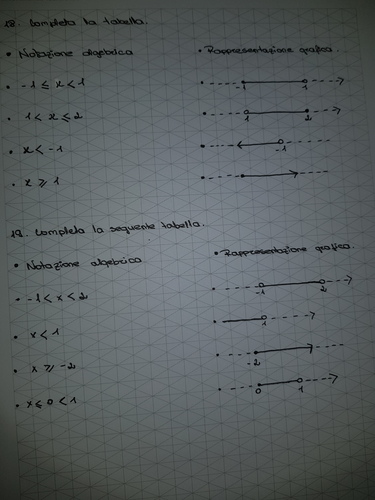 18. Completa la tabella.
• Notazione algebrica • Rappresentazione grafica.
• -1 ≤ x < 1 -1 1
• 1 < x ≤ 2 1 2
• x < -1 -1
• x ≥ 1
19. Completa la seguente tabella.
• Notazione algebrica • Rappresentazione grafica.
• -1 < x < 2 -1 2
• x < 1 1
• x ≥ -2 -2
• x ≤ 0 < 1 0 1